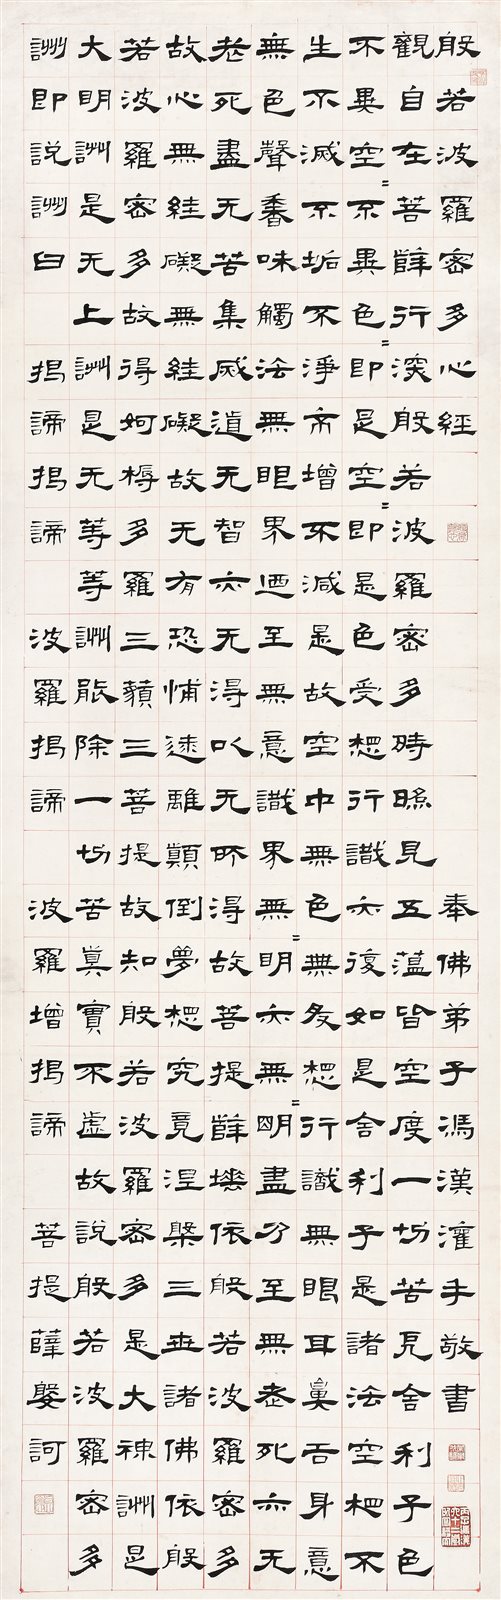 般若波羅密多心經 奉佛弟子馮漢灌手敬書
觀自在菩薩行深般若波羅密多時照見五蕰皆空度一切苦厄舍利子色
不異空〻不異色〻即是空〻即是色受想行識亦復如是舍利子是諸法空相不
生不滅不垢不淨不增不減是故空中無色無受想行識無眼耳鼻舌身意
無色聲香味觸法無眼界迺至無意識界無〻明亦無〻明盡乃至無老死亦无
老死盡无苦集滅道无智亦无得以无所得故菩提薩埵依般若波羅密多
故心無絓礙無絓礙故无有恐怖遠離顛倒夢想究竟涅槃三世諸佛依般
若波羅密多故得阿耨多羅三藐三菩提故知般若波羅密多是大神詶是
大明詶是无上詶是无等等詶能除一切苦真實不虛故說般若波羅密多
詶即說詶曰 揭諦揭諦 波羅揭諦 波羅增揭諦 菩提薩婆訶